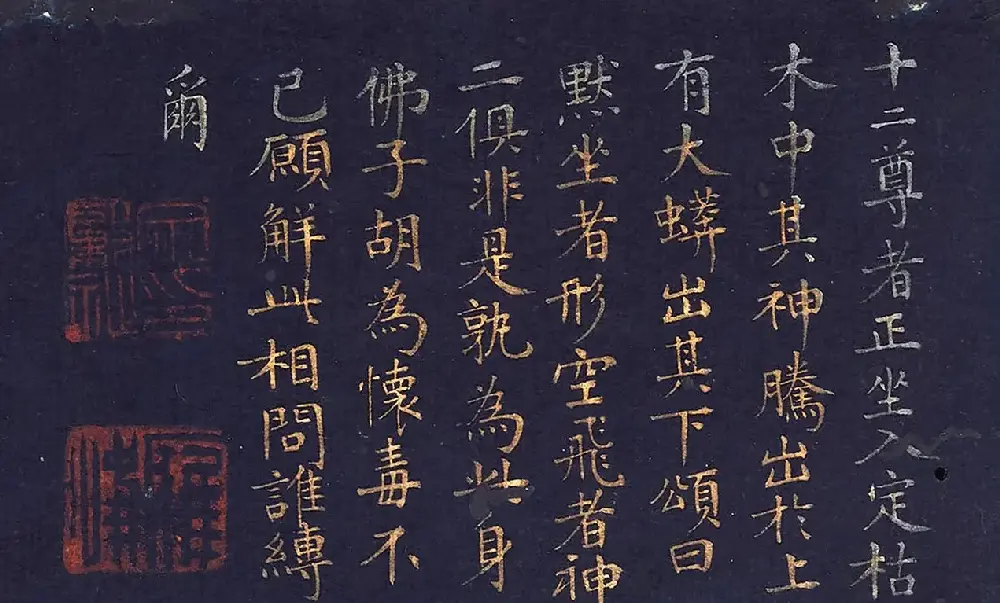 十二尊者正坐入定枯
木中其神騰出於上
有大蟒出其下頌曰
默坐者形空飛者神
二俱非是孰為此身
佛子胡為懷毒不
已願解此相問誰縛
爾